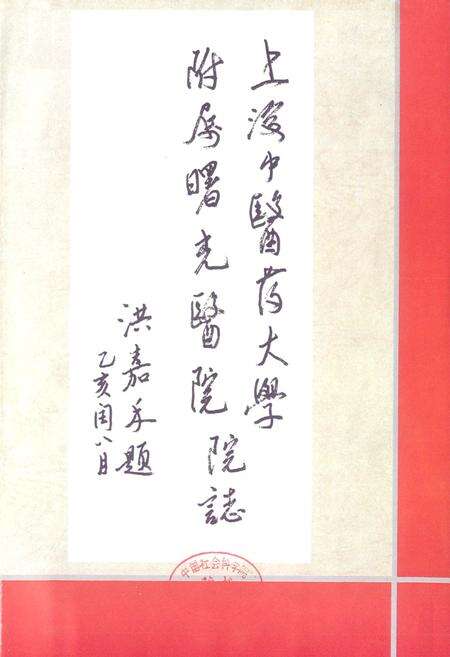 上海中醫药大學
附属曙光醫院
院誌
洪嘉禾題
乙亥闰八月
中国社会科学院